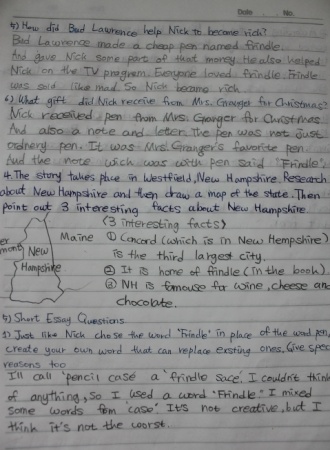 Date No.
5) How did Bud Lawrence help Nick to become rich?
Bud Lawrence made a cheap pen named frindle.
And gave Nick some part of that money. He also helped
Nick on the TV program. Everyone loved frindle. Frindle
was sold like mad. So Nick became rich.
6) What gift did Nick receive from Mrs. Granger for Christmas?
Nick received pen from Mrs. Granger for Christmas
And also a note and letter. The pen was not just
ordnery pen. It was Mrs. Granger's favorite pen.
And the note wich was with pen said 'Frindle'.
4. The story takes place in Westfield, New Hampshire. Research
about New Hampshire and then draw a map of the state. Then
point out 3 interesting facts about New Hampshire
<3 interesting facts>
Maine ① Concord (which is in New Hempshire)
New
Hanpshire
is the third largest city.
② It is home of frindle (in the book)
③ NH is famouse for wine, cheese and
chocolate.
5) Short Essay Questions
1) Just like Nick chose the word 'Frindle' in place of the word pen,
create your own word that can replace existing ones. Give
reasons too
I'll call 'pencil case' a 'frindle sace'. I couldn't think
of anything, so I used a word "Frindle". I mixed
some words fom 'case'. It's not creative, but I
think it's not the worst.